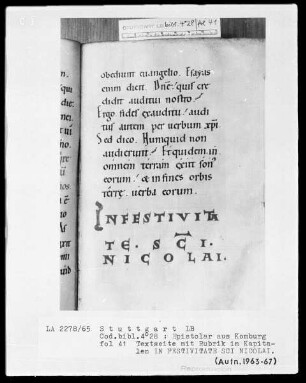 Cod.bibl.4°28/Av 41
obediunt euangelio. Esayas
enim dicit. Dn̄e. quis cre
didit auditui nostro.
Ergo fides ex auditu. audi
tus autem per verbum xp̄i.
Sed dico. Numquid non
audierunt. Et quidem in
omnem terram exiit son'
eorum. & in fines orbis
terrę. uerba eorum.
IN FESTIVITA
TE. SC̄I.
NICOLAI.
LA 2278/65 Stuttgart LB
Cod.bibl.4°28 : Epistolar aus Komburg
fol 41 Textseite mit Rubrik in Kapita-
len IN FESTIVITATE SCI NICOLAI.
(Aufn.1963-67)